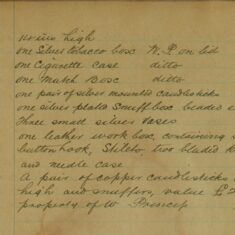 inches high
one Silver tobacco box W.P. on lid
one Cigarette case ditto
one Match Box ditto
one pair of silver mounted candlesticks
one silver plated Snuff box beaded
three small silver vases
one leather work box, containing
buttonhook, Stiletto, two bladed
and needle case
A pair of copper candlesticks
high and snuffers, value £2
property of W Princep